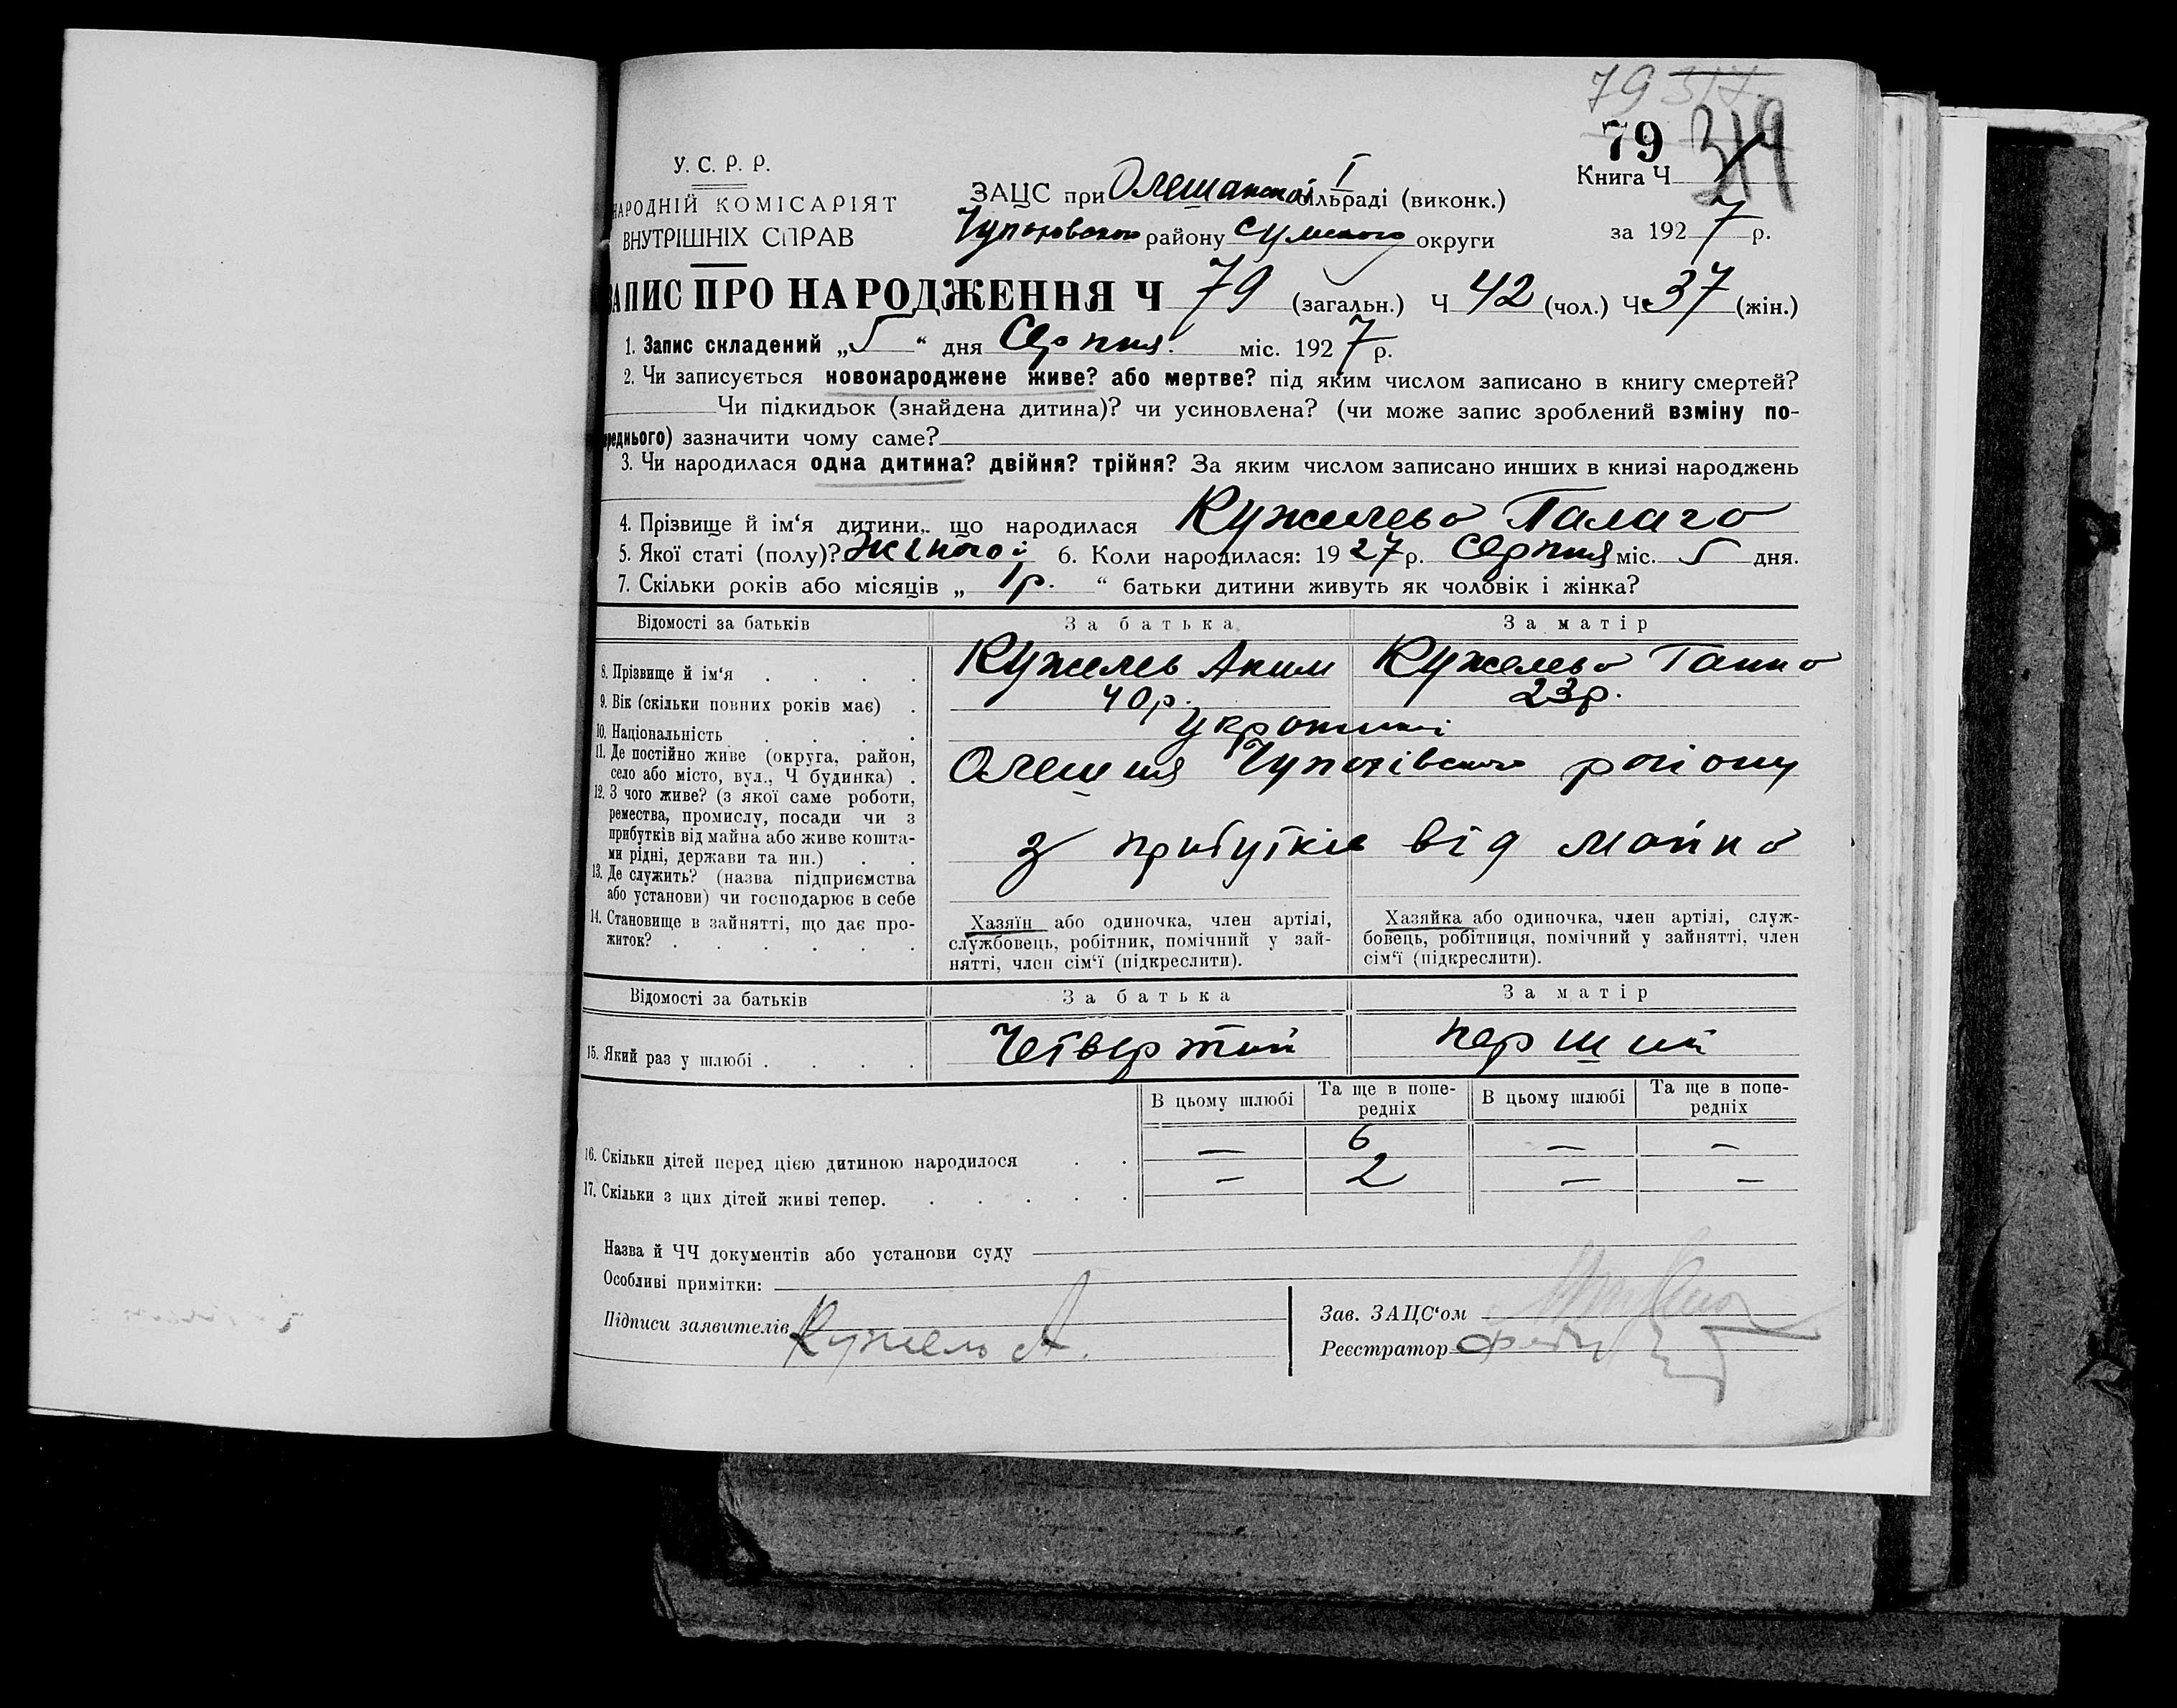 79 317
79 319
У. С. Р. Р.
НАРОДНІЙ КОМІСАРІЯТ
ВНУТРІШНІХ СПРАВ
ЗАЦС при Олешанской І сільраді (виконк.)
Чупаховского району Сумского округи
Книга Ч
за 1927 р.
ЗАПИС ПРО НАРОДЖЕННЯ Ч 79 (загальн.) Ч 42 (чол.) Ч 37 (жін.)
1. Запис складений „5“ дня Серпня. міс. 1927 р.
2. Чи записується новонароджене живе? або мертве? під яким числом записано в книгу смертей?
Чи підкидьок (знайдена дитина)? чи усиновлена? (чи може запис зроблений взміну по-
переднього) зазначити чому саме?
3. Чи народилася одна дитина? двійня? трійня? За яким числом записано инших в книзі народжень
4. Прізвище й ім‘я дитини, що народилася Кужелева Палага
5. Якої статі (полу)? Жіночої 6. Коли народилася: 1927 р. Серпня міс. 5 дня.
7. Скільки років або місяців „1 р.“ батьки дитини живуть як чоловік і жінка?
Відомості за батьків За батька За матір
8. Прізвище й ім‘я . . . . Кужелев Аким Кужелева Ганна
9. Вік (скільки повних років має) . 40 р. 23 р.
10. Національність . . . . українці
11. Де постійно живе (округа, район,
село або місто, вул., Ч будинка) . Олешня Чупахівского району
12. З чого живе? (з якої саме роботи,
ремества, промислу, посади чи з
прибутків від майна або живе кошта-
ми рідні, держави та ин.) . . з прибутків від майна
13. Де служить? (назва підприємства
або установи) чи господарює в себе
14. Становище в зайнятті, що дає про-
житок? . . . . . .
Хазяїн або одиночка, член артілі,
службовець, робітник, помічний у зай-
нятті, член сім‘ї (підкреслити).
Хазяйка або одиночка, член артілі, служ-
бовець, робітниця, помічний у зайнятті, член
сім‘ї (підкреслити).
Відомості за батьків За батька За матір
15. Який раз у шлюбі . . . . Четвертий перший
В цьому шлюбі Та ще в попе-
редніх В цьому шлюбі Та ще в попе-
редніх
16. Скільки дітей перед цією дитиною народилося . . — 6 — —
17. Скільки з цих дітей живі тепер. . . . . . — 2 — —
Назва й ЧЧ документів або установи суду
Особливі примітки:
Підписи заявителів Кужель А.
Зав. ЗАЦС‘ом
Реєстратор